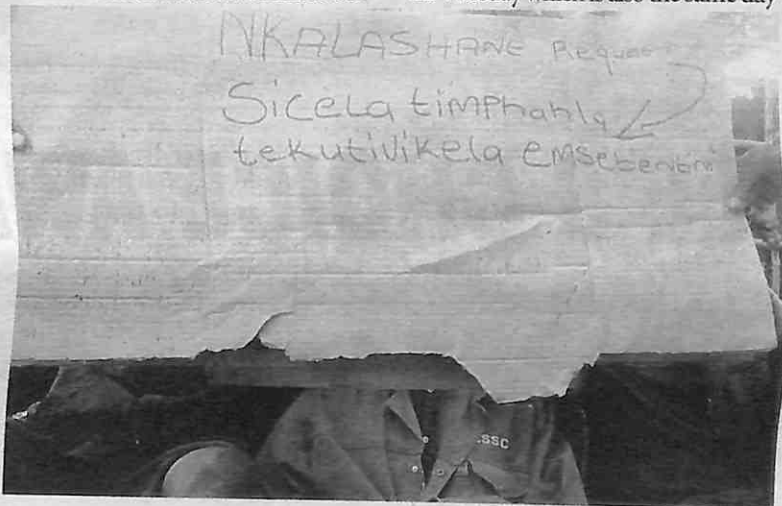 which is also the same day
NKALASHANE Reques
Sicela timphahla
tekutivikela emsebentini
SSC